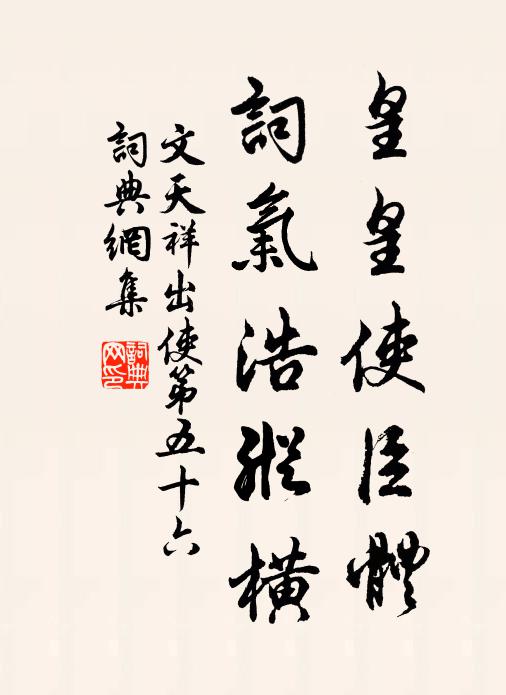 皇皇使臣體
詞氣浩縱橫
文天祥出使第五十六
詞典網集
詞典网印